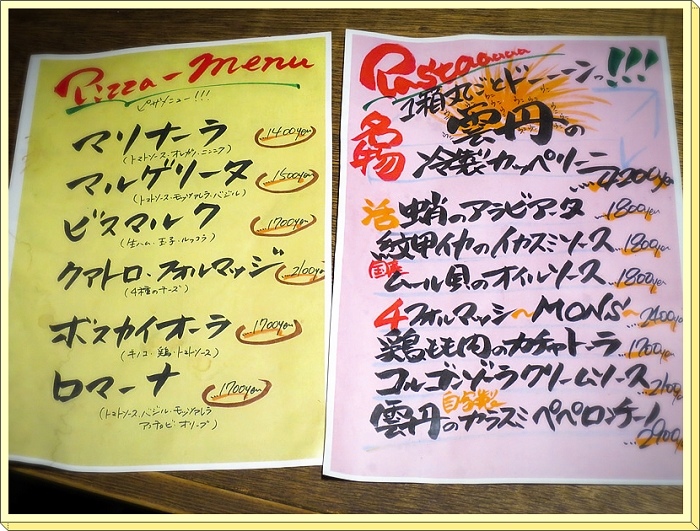 Pizza-menu
ピザメニュー!!!
マリナーラ 1400yen
(トマトソース・オレガノ・ニンニク)
マルゲリータ 1500yen
(トマトソース・モッツァレラ・バジル)
ビスマルク 1700yen
(生ハム・玉子・ルッコラ)
クアトロ・フォルマッジ 2100yen
(4種のチーズ)
ボスカイオーラ 1700yen
(キノコ・鶏・トマトソース)
ロマーナ 1700yen
(トマトソース・バジル・モッツァレラ
アンチョビ オリーブ)
Pastaaaaa!!!
1箱丸ごとドーーンっ
名物 雲丹の
冷製カッペリーニ 4200yen
活蛸のアラビアータ 1800yen
紋甲イカのイカスミソース 1800yen
国産ムール貝のオイルソース 1800yen
4フォルマッジ～MONS～ 2100yen
鶏もも肉のカチャトーラ 1700
ゴルゴンゾーラクリームソース 2100
雲丹の自家製カラスミペペロンチーノ
2900yen